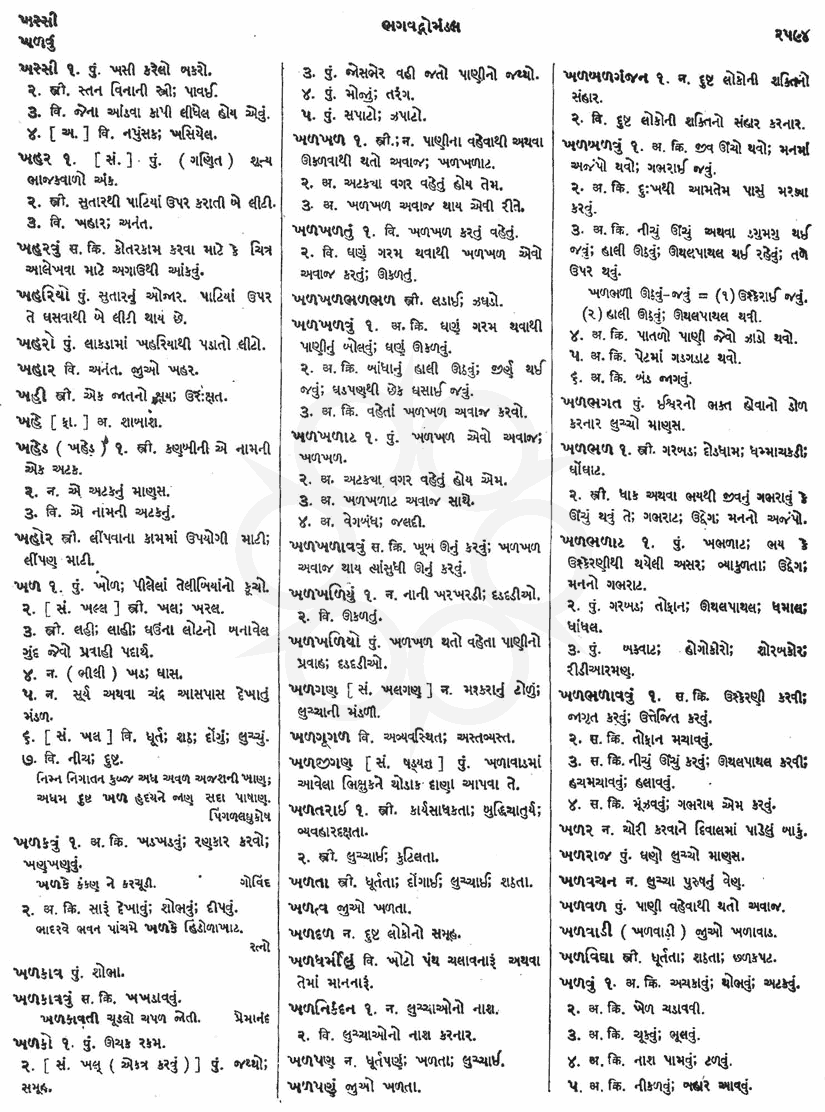 ખસ્સી
ખળવું
ભગવદ્ગોમંડલ
૨૫૯૪
ખસ્સી ૧. પું. ખસી કરેલો બકરો.
૨. સ્ત્રી. સ્તન વિનાની સ્ત્રી; પાવઈ.
૩. વિ. જેના આંડવા કાપી લીધેલ હોય એવું.
૪. [ અ. ] વિ. નપુંસક; ખસિયેલ.
ખહર ૧. [ સં. ] પું. ( ગણિત ) શૂન્ય
ભાજકવાળો અંક.
૨. સ્ત્રી. સુતારથી પાટિયાં ઉપર કરાતી બે લીટી.
૩. વિ. ખહાર; અનંત.
ખહરવું સ. ક્રિ. કોતરકામ કરવા માટે કે ચિત્ર
આલેખવા માટે અગાઉથી આંકવું.
ખહરિયો પું. સુતારનું ઓજાર. પાટિયાં ઉપર
તે ઘસવાથી બે લીટી થાય છે.
ખહરો પું. લાકડામાં ખહરિયાથી પડાતો લીટો.
ખહાર વિ. અનંત. જુઓ ખહર.
ખહી સ્ત્રી. એક જાતનો ક્ષય; ઉરઃક્ષત.
ખહે [ ફા. ] અ. શાબાશ.
ખહેડ ( ખહૅડ ) ૧. સ્ત્રી. કણબીની એ નામની
એક અટક.
૨. ન. એ અટકનું માણસ.
૩. વિ. એ નામની અટકનું.
ખહોર સ્ત્રી. લીંપવાના કામમાં ઉપયોગી માટી;
લીંપણ માટી.
ખળ ૧. પું. ખોળ; પીલેલાં તેલીબિયાંનો કૂચો.
૨. [ સં. ખલ્લ ] સ્ત્રી. ખલ; ખરલ.
૩. સ્ત્રી. લહી; લાહી; ઘઉંના લોટનો બનાવેલ
ગુંદ જેવો પ્રવાહી પદાર્થ.
૪. ન. ( ભીલી ) ખડ; ઘાસ.
૫. ન. સૂર્ય અથવા ચંદ્ર આસપાસ દેખાતું
મંડળ.
૬. [ સં. ખલ ] વિ. ધૂર્ત; શઠ; દોંગું; લુચ્ચું.
૭. વિ. નીચ; દુષ્ટ.
નિમ્ન નિગાતન કુબ્જ અધ અવળ અજશની ખાણ;
અધમ દુષ્ટ ખળ હૃદયને જાણુ સદા પાષાણ.
પિંગળલઘુકોષ
ખળકવું ૧. અ. ક્રિ. ખડખડવું; રણકાર કરવો;
ખણુખણવું.
ખળકે કંકણ ને કરચૂડી. ગોવિંદ
૨. અ. ક્રિ. સારૂં દેખાવું; શોભવું; દીપવું.
ભાદરવે ભવન પાંચમે ખળકે હિંડોળાખાટ.
રત્નો
ખળકાવ પું. શોભા.
ખળકાવવું સ. ક્રિ. ખખડાવવું.
ખળકાવતી ચૂડલો ચપળ જોતી. પ્રેમાનંદ
ખળકો ૧. પું. ઊચક રકમ.
૨. [ સં. ખલ્ ( એકત્ર કરવું ) ] પું. જથ્થો;
સમૂહ.
૩. પું. જોસભેર વહી જતો પાણીનો જથ્થો.
૪. પું. મોજું; તરંગ.
૫. પું. સપાટો; ઝપાટો.
ખળખળ ૧. સ્ત્રી.; ન. પાણીના વહેવાથી અથવા
ઊકળવાથી થતો અવાજ; ખળખળાટ.
૨. અ. અટક્યા વગર વહેતું હોય તેમ.
૩. અ. ખળખળ અવાજ થાય એવી રીતે.
ખળખળતું ૧. વિ. ખળખળ કરતું વહેતું.
૨. વિ. ઘણું ગરમ થવાથી ખળખળ એવો
અવાજ કરતું; ઊકળતું.
ખળખળભળભળ સ્ત્રી. લડાઈ; ઝઘડો.
ખળખળવું ૧. અ. ક્રિ. ઘણું ગરમ થવાથી
પાણીનું બોલવું; ઘણું ઊકળવું.
૨. અ. ક્રિ. બાંધાનું હાલી ઊઠવું; જીર્ણ થઈ
જવું; ઘડપણથી છેક ઘસાઈ જવું.
૩. અ. ક્રિ. વહેતાં ખળખળ અવાજ કરવો.
ખળખળાટ ૧. પું. ખળખળ એવો અવાજ;
ખળખળ.
૨. અ. અટકયા વગર વહેતું હોય એમ.
૩. અ. ખળખળાટ અવાજ સાથે.
૪. અ. વેગબંધ; જલદી.
ખળખળાવવું સ. ક્રિ. ખૂબ ઊનું કરવું; ખળખળ
અવાજ થાય ત્યાંસુધી ઊનું કરવું.
ખળખળિયું ૧. ન. નાની ખરખરડી; દડદડીઓ.
૨. વિ. ઊકળતું.
ખળખળિયો પું. ખળખળ થતો વહેતા પાણીનો
પ્રવાહ; દડદડીઓ.
ખળગણ [ સં. ખલગણ ] ન. મશ્કરાનું ટોળું;
લુચ્ચાની મંડળી.
ખળગૂગળ વિ. અવ્યવસ્થિત; અસ્તવ્યસ્ત.
ખળજીગણ [ સં. ષડ્યજ્ઞ ] પું. ખળાવાડમાં
આવેલા ભિક્ષુકને થોડાક દાણા આપવા તે.
ખળતરાઈ ૧. સ્ત્રી. કાર્યસાધકતા; બુદ્ધિચાતુર્ય;
વ્યવહારદક્ષતા.
૨. સ્ત્રી. લુચ્ચાઈ; કુટિલતા.
ખળતા સ્ત્રી. ધૂર્તતા; દોંગાઈ; લુચ્ચાઈ; શઠતા.
ખળત્વ જુઓ ખળતા.
ખળદળ ન. દુષ્ટ લોકોનો સમૂહ.
ખળધર્મીલું વિ. ખોટો પંથ ચલાવનારૂં અથવા
તેમાં માનનારૂં.
ખળનિકંદન ૧. ન. લુચ્ચાઓનો નાશ.
૨. વિ. લુચ્ચાઓનો નાશ કરનાર.
ખળપણ ન. ધૂર્તપણું; ખળતા; લુચ્ચાઈ.
ખળપણું જુઓ ખળતા.
ખળખળગંજન ૧. ન. દુષ્ટ લોકોની શક્તિનો
સંહાર.
૨. વિ. દુષ્ટ લોકોની શક્તિનો સંહાર કરનાર.
ખળભળવું ૧. અ. ક્રિ. જીવ ઊંચો થવો; મનમાં
અજંપો થવો; ગભરાઈ જવું.
૨. અ. ક્રિ. દુઃખથી આમતેમ પાસું મરડ્યા
કરવું.
૩. અ. ક્રિ. નીચું ઊંચું અથવા ડગુમગુ થઈ
જવું; હાલી ઊઠવું; ઊથલપાથલ થઈ રહેવું; તળે
ઉપર થવું.
ખળભળી ઊઠવું-જવું = (૧) ઉશ્કેરાઈ જવું.
(૨) હાલી ઊઠવું; ઊથલપાથલ થવી.
૪. અ. ક્રિ. પાતળો પાણી જેવો ઝાડો થવો.
૫. અ. ક્રિ. પેટમાં ગડગડાટ થવો.
૬. અ. ક્રિ. બંડ જાગવું.
ખળભગત પું. ઈશ્વરનો ભક્ત હોવાનો ડોળ
કરનાર લુચ્ચો માણસ.
ખળભળ ૧. સ્ત્રી. ગરબડ; દોડધામ; ધમ્માચકડી;
ઘોંઘાટ.
૨. સ્ત્રી. ધાક અથવા ભયથી જીવનું ગભરાવું કે
ઊંચું થવું તે; ગભરાટ; ઉદ્વેગ; મનનો અજંપો.
ખળભળાટ ૧. પું. ખભળાટ; ભય કે
ઉશ્કેરણીથી થયેલી અસર; વ્યાકુળતા; ઉદ્વેગ;
મનનો ગભરાટ.
૨. પું. ગરબડ; તોફાન; ઊથલપાથલ; ધમાલ;
ધાંધલ.
૩. પું. બકવાટ; હોગોકીરો; શોરબકોર;
રીડીઆરમણ.
ખળભળાવવું ૧. સ. ક્રિ. ઉશ્કેરણી કરવી;
જાગૃત કરવું; ઉત્તેજિત કરવું.
૨. સ. ક્રિ. તોફાન મચાવવું.
૩. સ. ક્રિ. નીચું ઊંચું કરવું; ઊથલપાથલ કરવી;
હચમચાવવું; હલાવવું.
૪. સ. ક્રિ. મૂંઝવવું; ગભરાય એમ કરવું.
ખળર ન. ચોરી કરવાને દિવાલમાં પાડેલું બાકું.
ખળરાજ પું. ઘણો લુચ્ચો માણસ.
ખળવચન ન. લુચ્ચા પુરુષનું વેણ.
ખળવળ પું. પાણી વહેવાથી થતો અવાજ.
ખળવાડી ( ખળવાડી ) જુઓ ખળાવાડ.
ખળવિદ્યા સ્ત્રી. ધૂર્તતા; શઠતા; છળકપટ.
ખળવું ૧. અ. ક્રિ. અચકાવું; થોભવું; અટકવું.
૨. અ. ક્રિ. ખેળ ચડાવવી.
૩. અ. ક્રિ. ચૂકવું; ભૂલવું.
૪. અ. ક્રિ. નાશ પામવું; ટળવું.
૫. અ. ક્રિ. નીકળવું; બહાર આવવું.